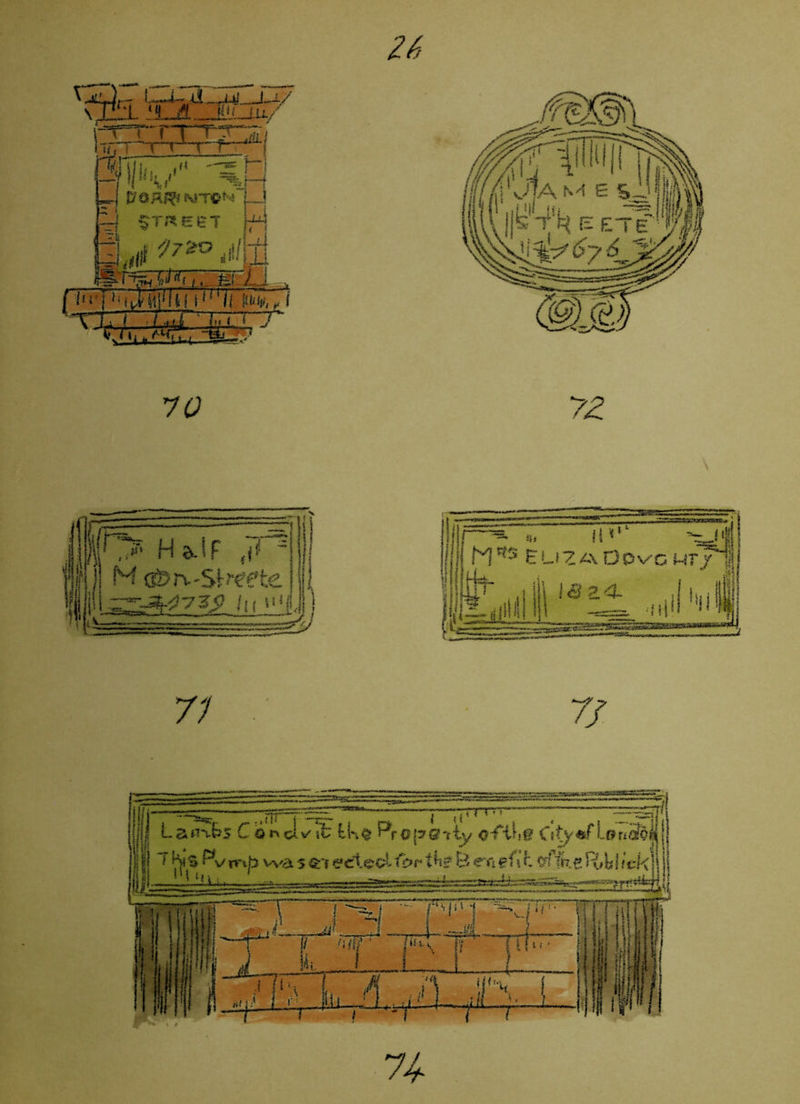 26
DORRINTON
STREET
1720
70
JAMES
STREETE
1676
72
Half
Moon-Streete
1730
71
MRS ELIZA DOVGHTY
1824
73
Lambs Condvit the Property of the City of London
This Pvmp was erected for the Benefit of the Publick
74